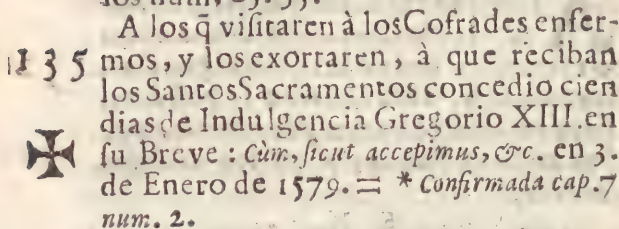 A los q̃ viſitaren à losCofrades enfer-
135 mos, y los exortaren, à que reciban
los SantosSacramentos concedio cien
dias de Indulgencia Gregorio XIII. en
ſu Breve : Cùm, ſicut accepimus, &c. en 3.
de Enero de 1579. = * Confirmada cap. 7
num. 2.